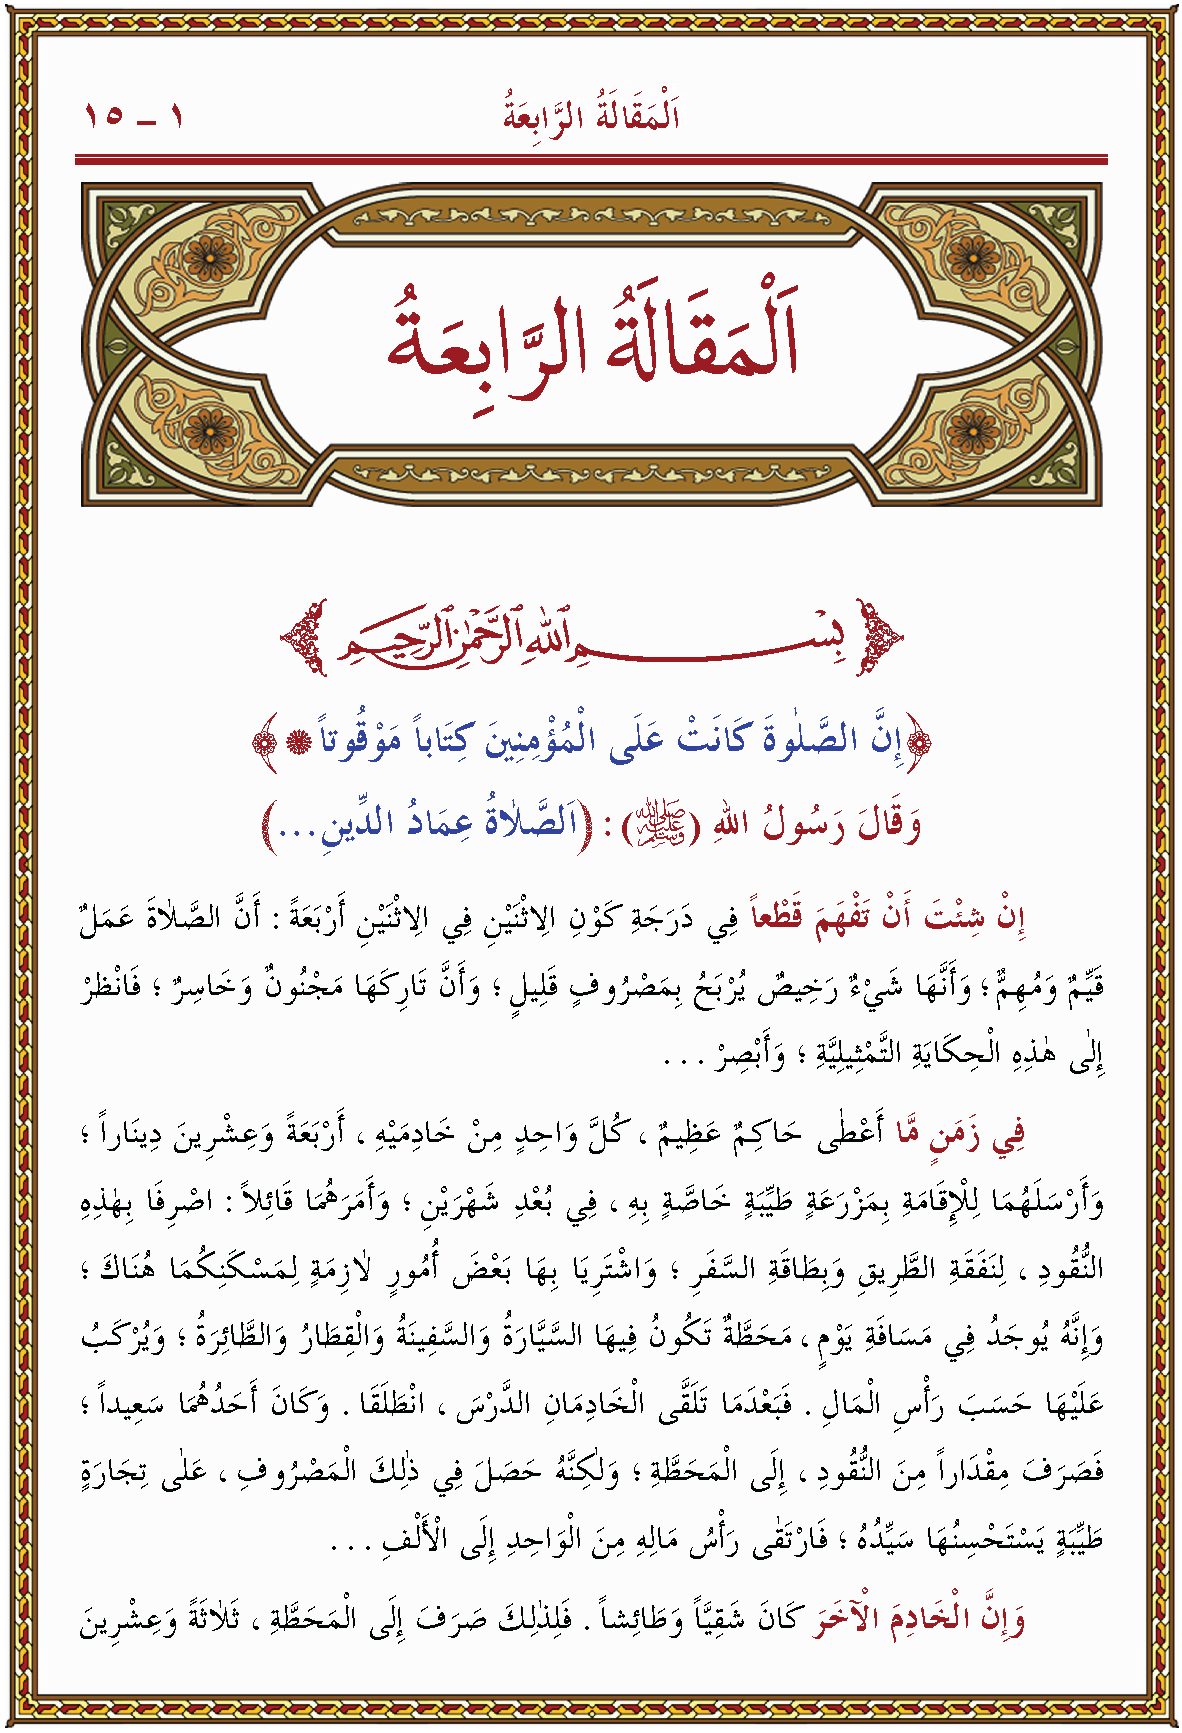 اَلْمَقَالَةُ الرَّابِعَةُ ١ ـ ١٥
اَلْمَقَالَةُ الرَّابِعَةُ
بِسْمِ اللّٰهِ الرَّحْمٰنِ الرَّحِيمِ
﴿إِنَّ الصَّلٰوةَ كَانَتْ عَلَى الْمُؤْمِنِينَ كِتَاباً مَوْقُوتاً ۞ ﴾
وَقَالَ رَسُولُ اللهِ (ﷺ) : (اَلصَّلَاةُ عِمَادُ الدِّينِ...)
إِنْ شِئْتَ أَنْ تَفْهَمَ قَطْعاً فِي دَرَجَةِ كَوْنِ اِثْنَيْنِ فِي اِثْنَيْنِ أَرْبَعَةً : أَنَّ الصَّلَاةَ عَمَلٌ
قَيِّمٌ وَمُهِمٌّ ؛ وَأَنَّهَا شَيْءٌ رَخِيصٌ يُرْبَحُ بِمَصْرُوفٍ قَلِيلٍ ؛ وَأَنَّ تَارِكَهَا مَجْنُونٌ وَخَاسِرٌ ؛ فَانْظُرْ
إِلٰى هٰذِهِ الْحِكَايَةِ التَّمْثِيلِيَّةِ ؛ وَأَبْصِرْ . . .
فِي زَمَنٍ مَّا أَعْطٰى حَاكِمٌ عَظِيمٌ ، كُلَّ وَاحِدٍ مِنْ خَادِمَيْهِ ، أَرْبَعَةً وَعِشْرِينَ دِينَاراً ؛
وَأَرْسَلَهُمَا لِلْإِقَامَةِ بِمَزْرَعَةٍ طَيِّبَةٍ خَاصَّةٍ بِهِ ، فِي بُعْدِ شَهْرَيْنِ ؛ وَأَمَرَهُمَا قَائِلاً : اصْرِفَا بِهٰذِهِ
النُّقُودِ ، لِنَفَقَةِ الطَّرِيقِ وَبِطَاقَةِ السَّفَرِ ؛ وَاشْتَرِيَا بِهَا بَعْضَ أُمُورٍ لَازِمَةٍ لِمَسْكَنِكُمَا هُنَاكَ ؛
وَإِنَّهُ يُوجَدُ فِي مَسَافَةِ يَوْمٍ ، مَحَطَّةٌ تَكُونُ فِيهَا السَّيَّارَةُ وَالسَّفِينَةُ وَالْقِطَارُ وَالطَّائِرَةُ ؛ وَيُرْكَبُ
عَلَيْهَا حَسَبَ رَأْسِ الْمَالِ . فَبَعْدَمَا تَلَقَّى الْخَادِمَانِ الدَّرْسَ ، انْطَلَقَا . وَكَانَ أَحَدُهُمَا سَعِيداً ؛
فَصَرَفَ مِقْدَاراً مِنَ النُّقُودِ ، إِلَى الْمَحَطَّةِ ؛ وَلٰكِنَّهُ حَصَلَ فِي ذٰلِكَ الْمَصْرُوفِ ، عَلٰى تِجَارَةٍ
طَيِّبَةٍ يَسْتَحْسِنُهَا سَيِّدُهُ ؛ فَارْتَقٰى رَأْسُ مَالِهِ مِنَ الْوَاحِدِ إِلَى الْأَلْفِ . . .
وَإِنَّ الْخَادِمَ الْآخَرَ كَانَ شَقِيَّاً وَطَائِشاً . فَلِذٰلِكَ صَرَفَ إِلَى الْمَحَطَّةِ ، ثَلَاثَةً وَعِشْرِينَ